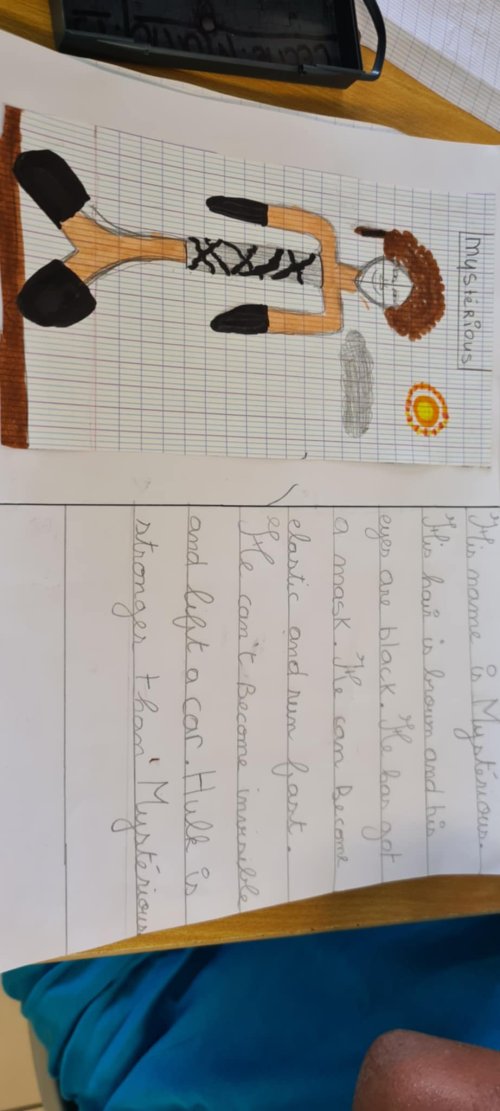 mystérious
His name is Mystérious.
His hair is brown and his
eyes are black. He has got
a mask. He can Become
elastic and run fast.
He can't Become invisible
and lift a car. Hulk is
stronger than Mystérious